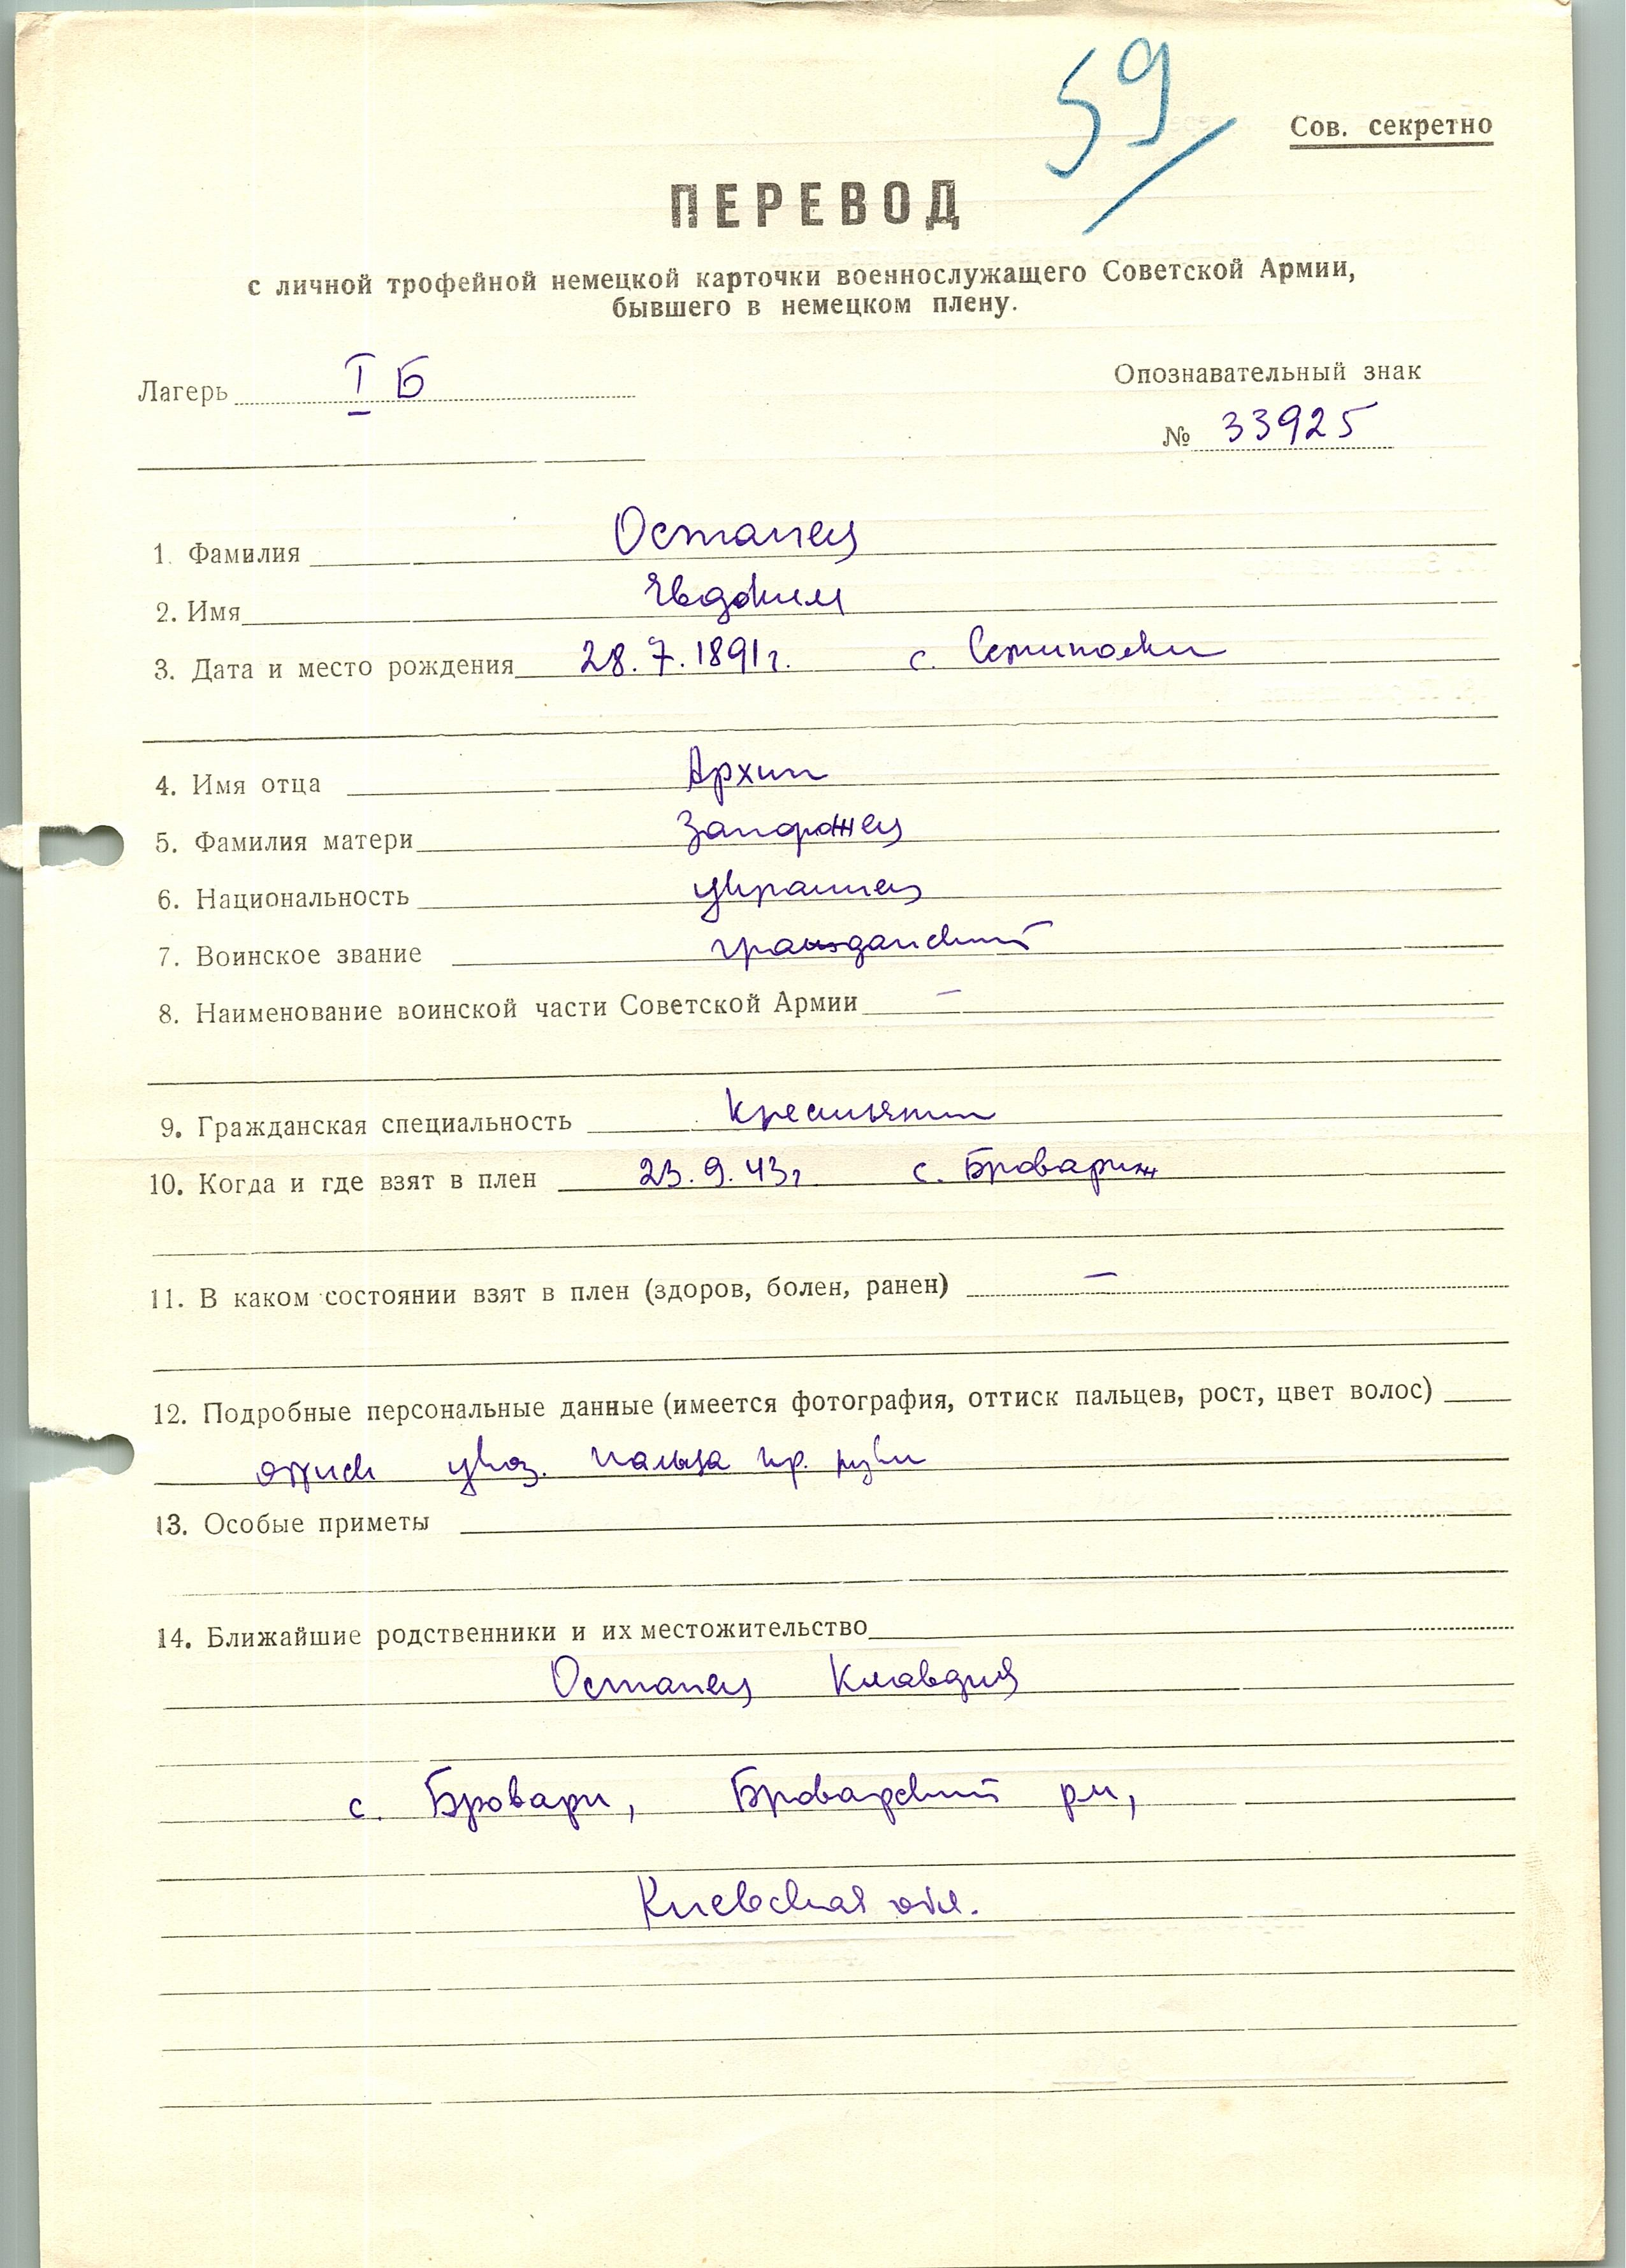 59
Сов. секретно
ПЕРЕВОД
с личной трофейной немецкой карточки военнослужащего Советской Армии,
бывшего в немецком плену.
Лагерь I Б
Опознавательный знак
№ 33925
1. Фамилия Остапец
2. Имя Евдоким
3. Дата и место рождения 28.7.1891г. с.
4. Имя отца Архип
5. Фамилия матери Запорожец
6. Национальность украинец
7. Воинское звание гражданский
8. Наименование воинской части Советской Армии –
9. Гражданская специальность крестьянин
10. Когда и где взят в плен 23.9.43г. с.
11. В каком состоянии взят в плен (здоров, болен, ранен) –
12. Подробные персональные данные (имеется фотография, оттиск пальцев, рост, цвет волос)
оттиск указ. пальца пр. руки
13. Особые приметы
14. Ближайшие родственники и их местожительство
Остапец Клавдия
с. Бровари, Броварский р-н,
Киевская обл.